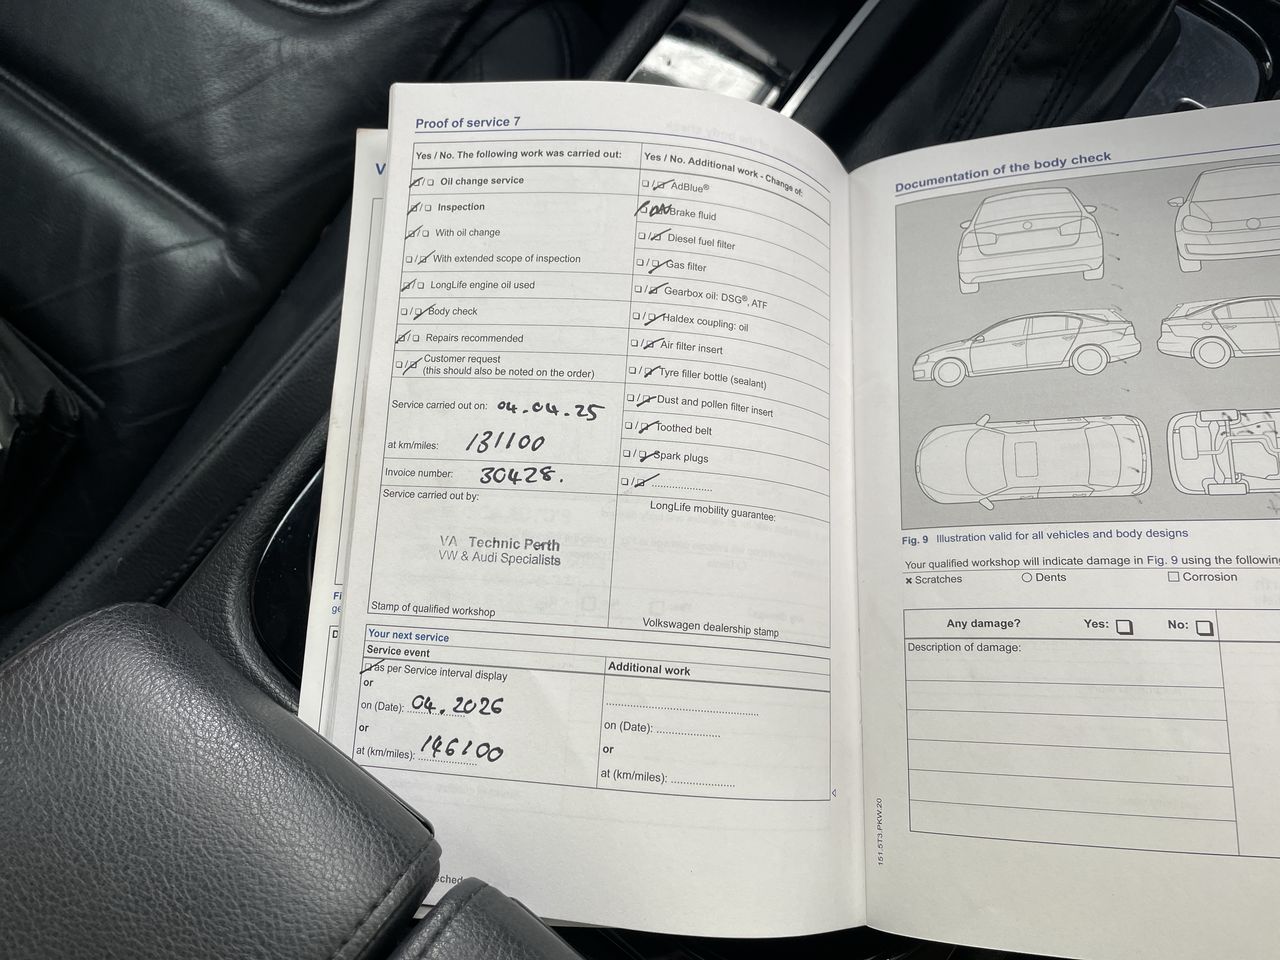 Proof of service 7
Yes / No. The following work was carried out:
Oil change service
Inspection
With oil change
With extended scope of inspection
LongLife engine oil used
Body check
Repairs recommended
Customer request
(this should also be noted on the order)
Service carried out on: 04.04.25
at km/miles: 131100
Invoice number: 30428.
Service carried out by:
VA Technic Perth
VW & Audi Specialists
Stamp of qualified workshop
Yes / No. Additional work - Change of:
AdBlue®
Brake fluid
Diesel fuel filter
Gas filter
Gearbox oil: DSG®, ATF
Haldex coupling: oil
Air filter insert
Tyre filler bottle (sealant)
Dust and pollen filter insert
Toothed belt
Spark plugs
LongLife mobility guarantee:
Volkswagen dealership stamp
Your next service
Service event
as per Service interval display
or
on (Date): 04.2026
or
at (km/miles): 146100
Additional work
on (Date):
or
at (km/miles):
sched
V
Fi
ge
D
Documentation of the body check
Fig. 9 Illustration valid for all vehicles and body designs
Your qualified workshop will indicate damage in Fig. 9 using the following
x Scratches
Dents
Corrosion
Any damage? Yes: No:
Description of damage:
151.5T3.PKW.20